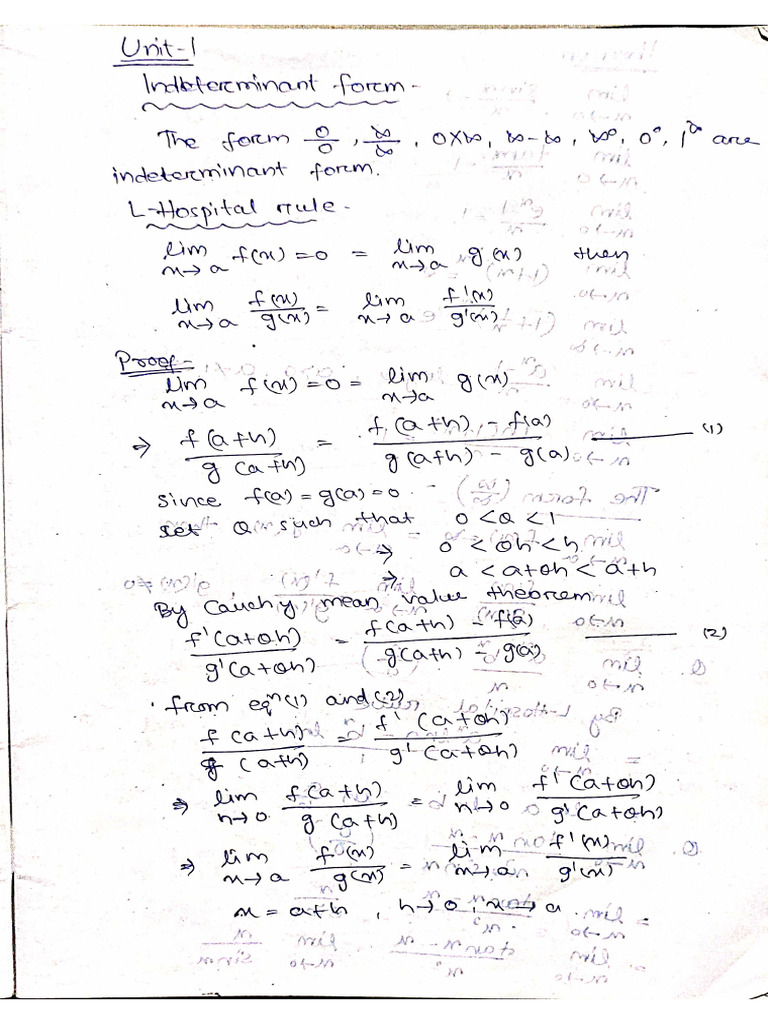 Unit-1
Indeterminant form-
The form 0/0, ∞/∞, 0×∞, ∞-∞, ∞⁰, 0⁰, 1^∞ are
indeterminant form.
L-Hospital rule-
lim x→a f(x)=0 = lim x→a g(x) then
lim x→a f(x)/g(x) = lim x→a f'(x)/g'(x)
Proof-
lim x→a f(x)=0 = lim x→a g(x)
⇒ f(a+h)/g(a+h) = f(a+h) - f(a)/g(a+h) - g(a) (1)
since f(a)=g(a)=0
set θ such that 0<θ<1
⇒ 0<θh<h
⇒ a<a+θh<a+h
By Cauchy mean value theorem
f'(a+θh)/g'(a+θh) = f(a+h) - f(a)/g(a+h) - g(a) (2)
from eqⁿ(1) and(2)
f(a+h)/g(a+h) = f'(a+θh)/g'(a+θh)
⇒ lim h→0 f(a+h)/g(a+h) = lim h→0 f'(a+θh)/g'(a+θh)
⇒ lim x→a f(x)/g(x) = lim x→a f'(x)/g'(x)
x = a+h, h→0, x→a